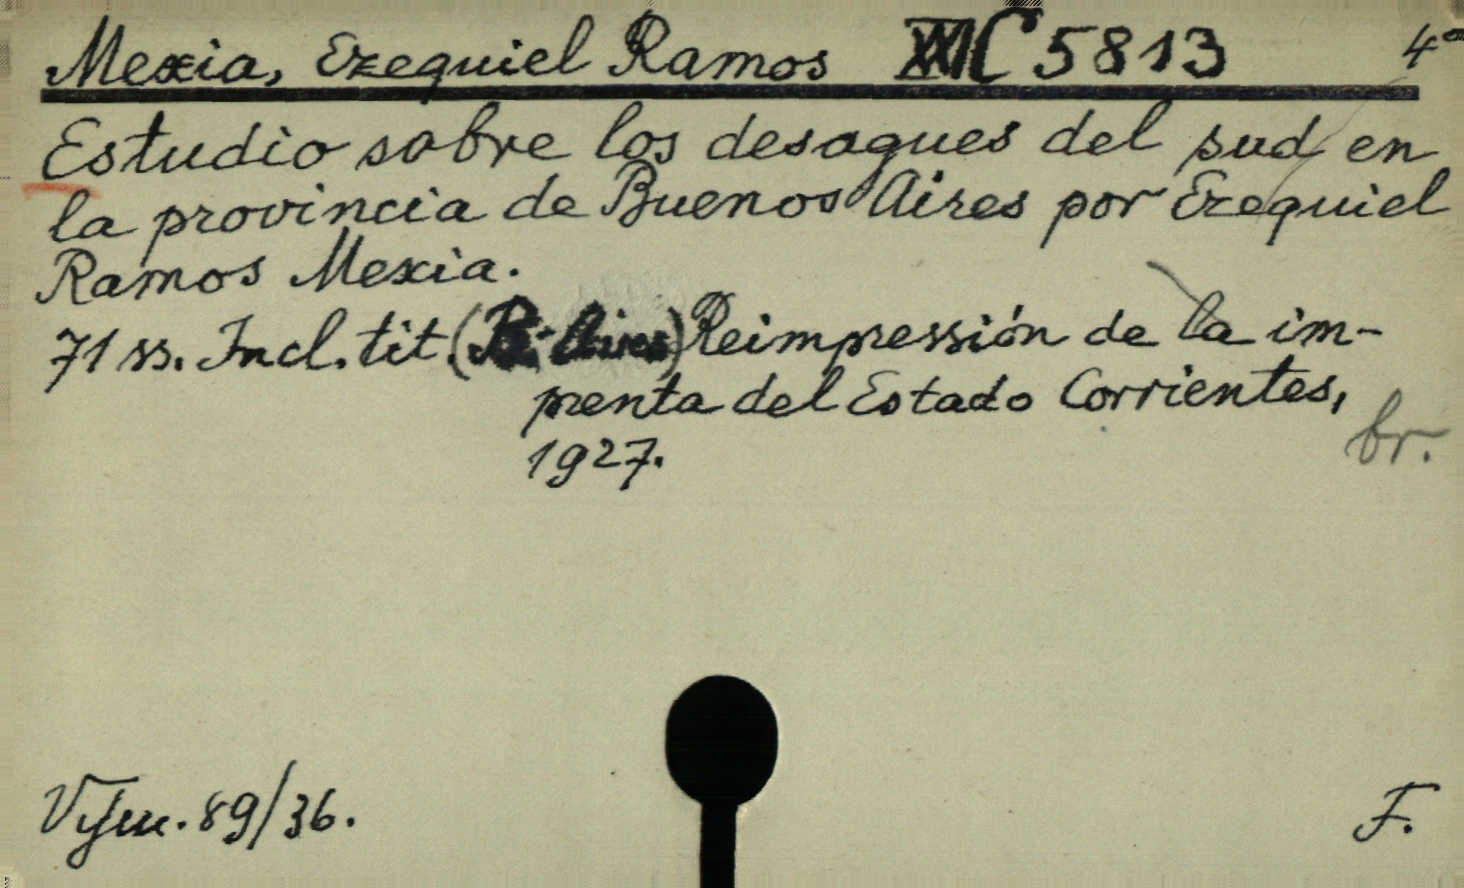 Mexia, Ezequiel Ramos XXII C 5813 4°
Estudio sobre los desagues del sud en
la provincia de Buenos Aires por Ezequiel
Ramos Mexia.
71 ss. Incl. tit. (B. Aires) Reimpressión de la im-
prenta del Estado Corrientes,
1927.
br.
Vým. 89/36. F.